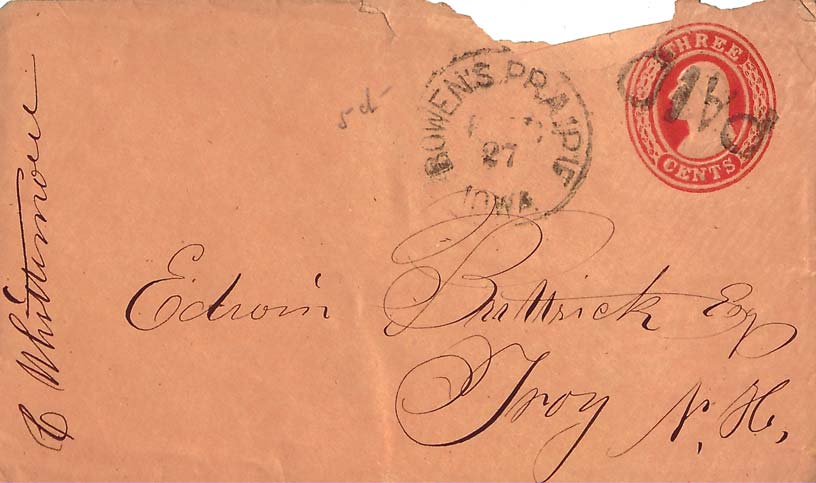 THREE
CENTS
PAID
BOWEN'S PRAIRIE
27
IOWA
5d-
C Whittemore
Edwin Buttrick Esq
Troy N. H.,